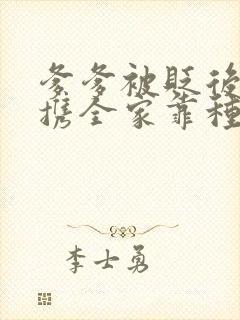 爹爹被貶後
携全家靠種
李士勇